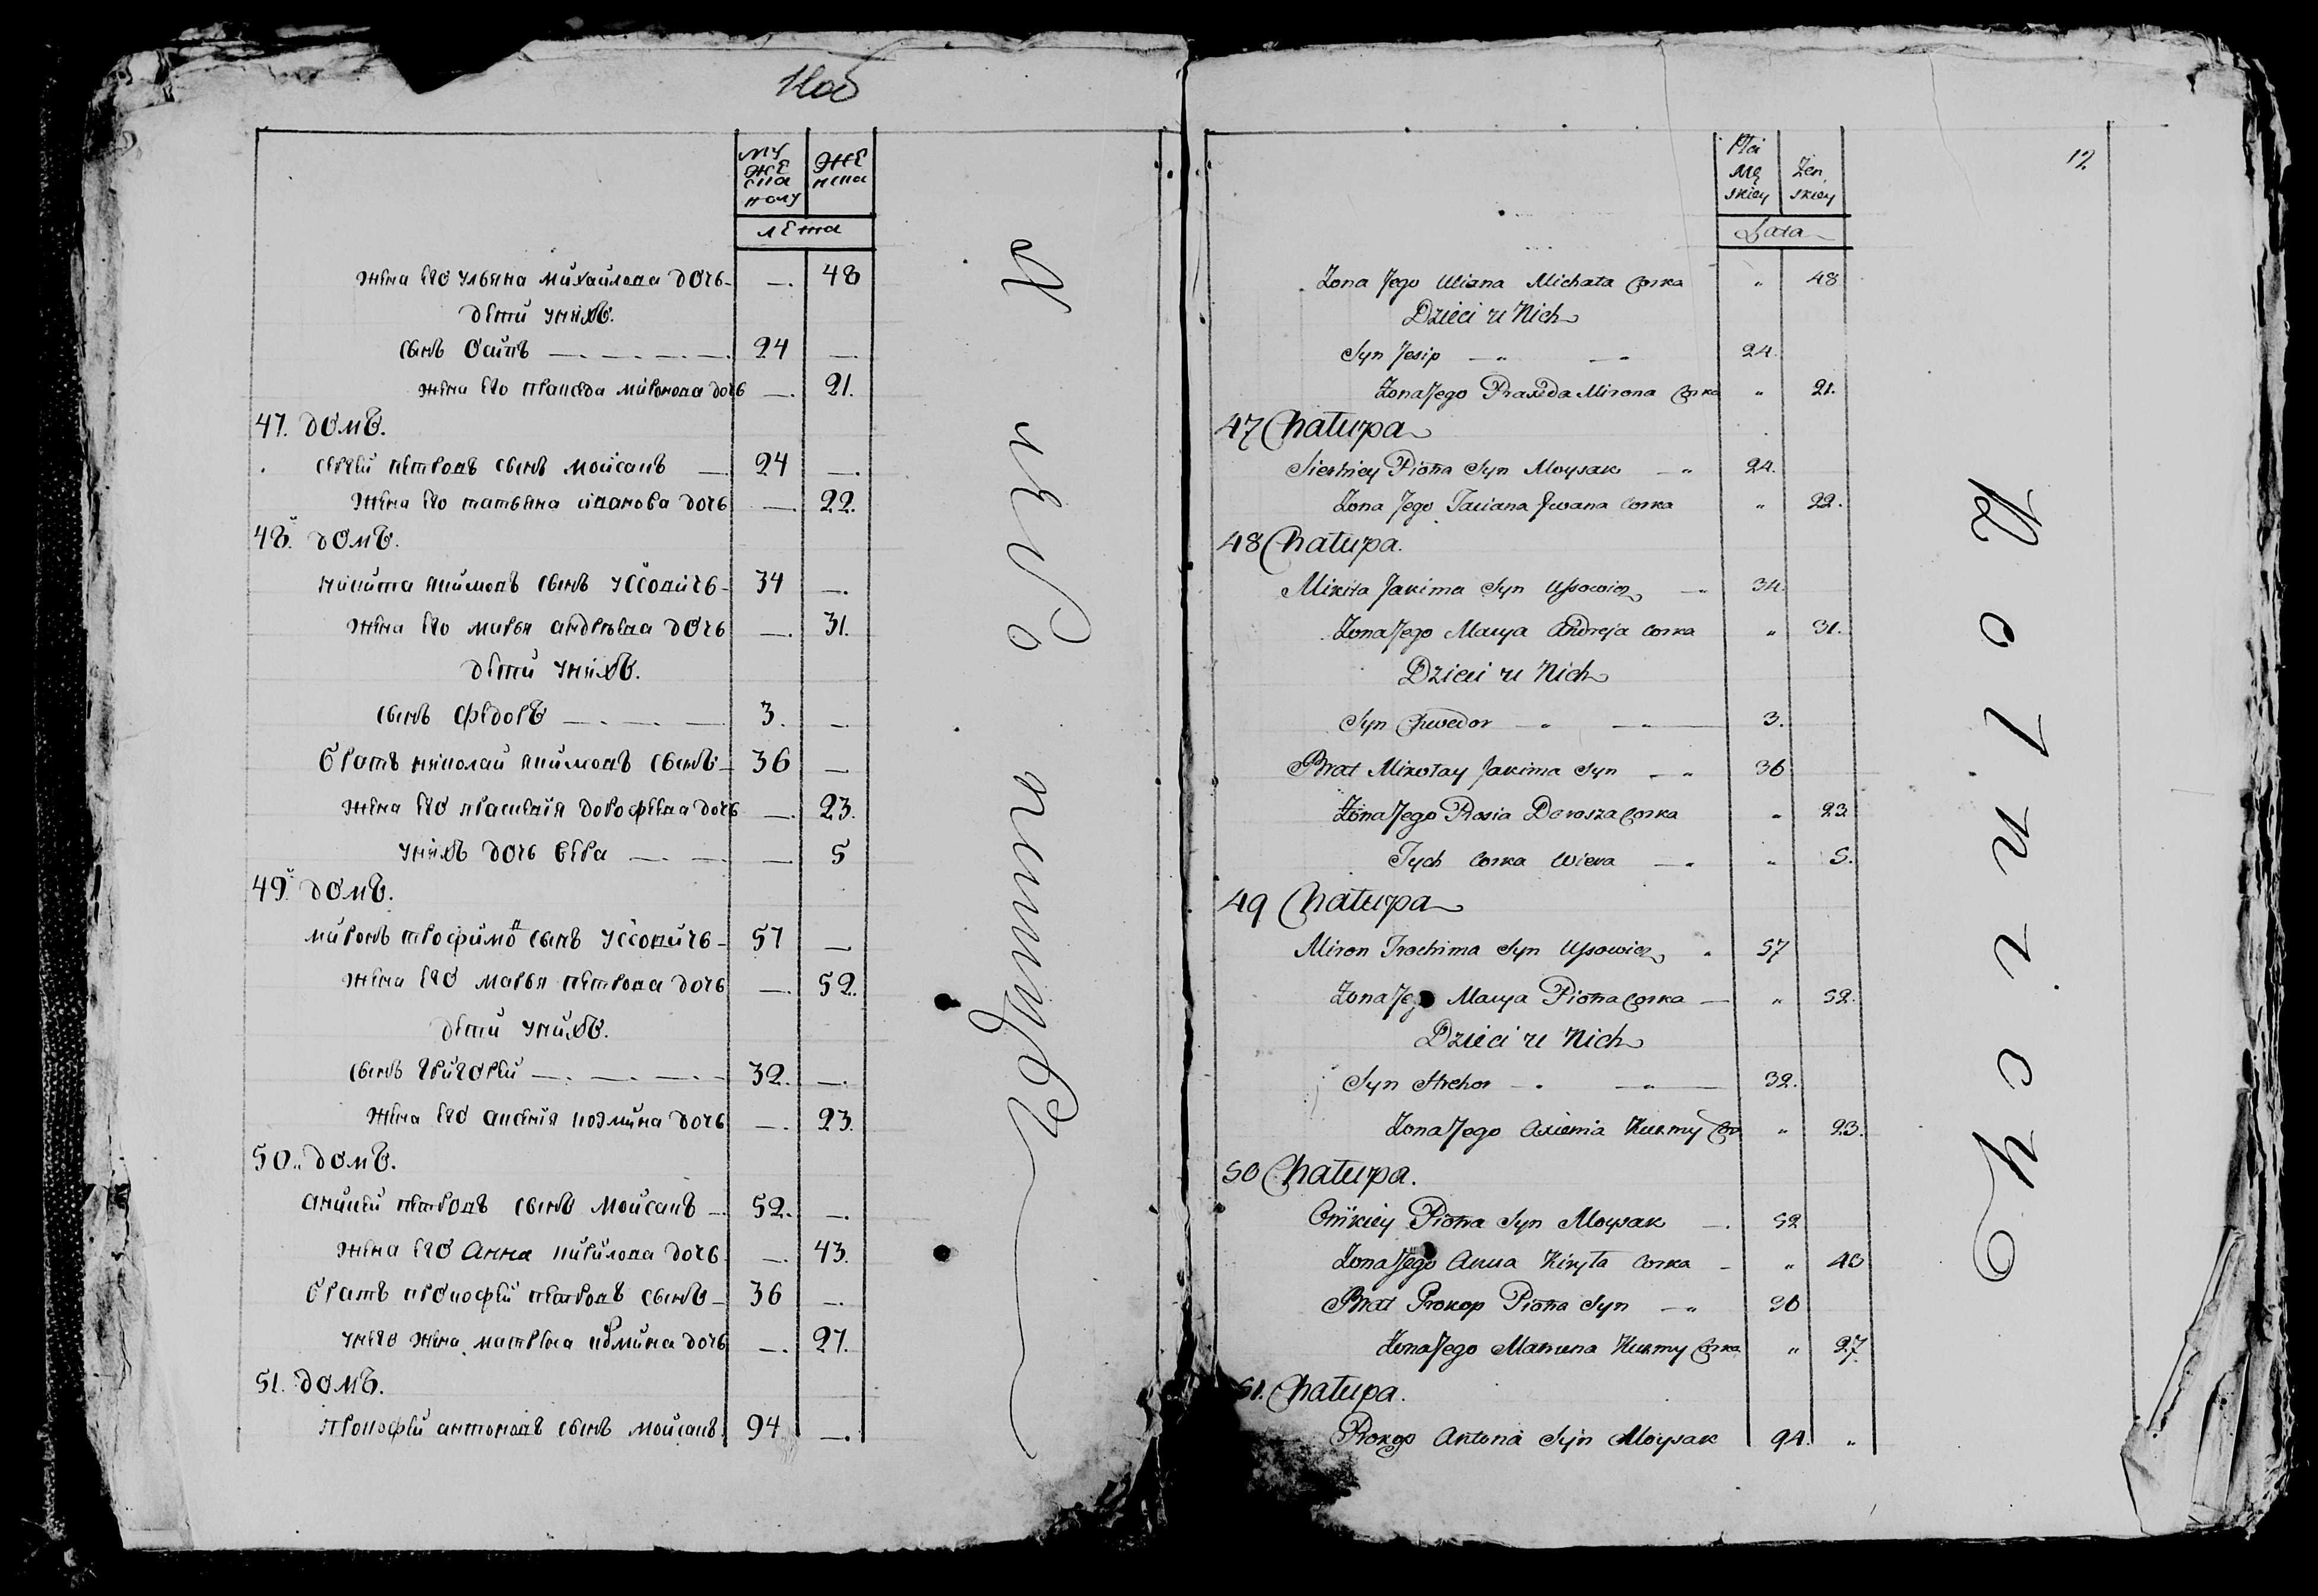 11об
МУ
ЖЕ
СКА
ПОЛУ
ЖЕ
НСКА
ЛЕТА
жена его ульяна михайлова дочь — 48
дети унихъ.
сынъ осипъ 24 —
жена его пракседа миронова дочь — 21.
47. домъ.
сергей петровъ сынъ мойсакъ 24 —
жена его татьяна иванова дочь — 22.
48. домъ.
никита якимовъ сынъ уссовичь 34 —
жена его марья андреева дочь — 31.
дети унихъ.
сынъ федоръ 3. —
братъ николай якимовъ сынъ 36 —
жена его прасковія дорофеева дочь — 23.
унихъ дочь вера — 5
49. домъ.
миронъ трофимовъ сынъ уссовичь 57 —
жена его марья петрова дочь — 52.
дети унихъ.
сынъ григорей 32. —
жена его аксенія козмина дочь — 23.
50. домъ.
аникей петровъ сынъ мойсакъ 52. —
жена его Анна кирилова дочь — 43.
братъ прокофей петровъ сынъ 36 —
унего жена матрена козмина дочь — 27.
51. домъ.
прокофей антоновъ сынъ мойсакъ 94 —
12
Płci
Mę
skiey
Żeń
skiey
Lata
Żona Jego Uliana Michała Corka " 48
Dzieci u Nich
Syn Jesip 24.
Żona Jego Praxeda Mirona Corka " 21.
47 Chałupa
Sierhiey Piotra Syn Moysak 24.
Żona Jego Taciana Jwana Corka " 22.
48 Chałupa.
Mikita Jakima Syn Ussowicz 34.
Żona Jego Marya Andreja Corka " 31.
Dzieci u Nich
Syn Chwedor 3.
Brat Mikołay Jakima Syn 36
Żona Jego Prosia Dorosza Corka " 23
Tych Corka Wiera " 5.
49 Chałupa
Miron Trochima Syn Ussowicz 57
Żona Jego Marya Piotra Corka " 52.
Dzieci u Nich
Syn Hrehor 32.
Żona Jego Axienia Kuzmy Cor " 23.
50 Chałupa.
Onikiey Piotra Syn Moysak 52
Żona Jego Anna Kiryła Corka " 43
Brat Prokop Piotra Syn 36
Żona Jego Matruna Kuzmy Corka " 27
51. Chałupa.
Prokop Antona Syn Moysak 94. "